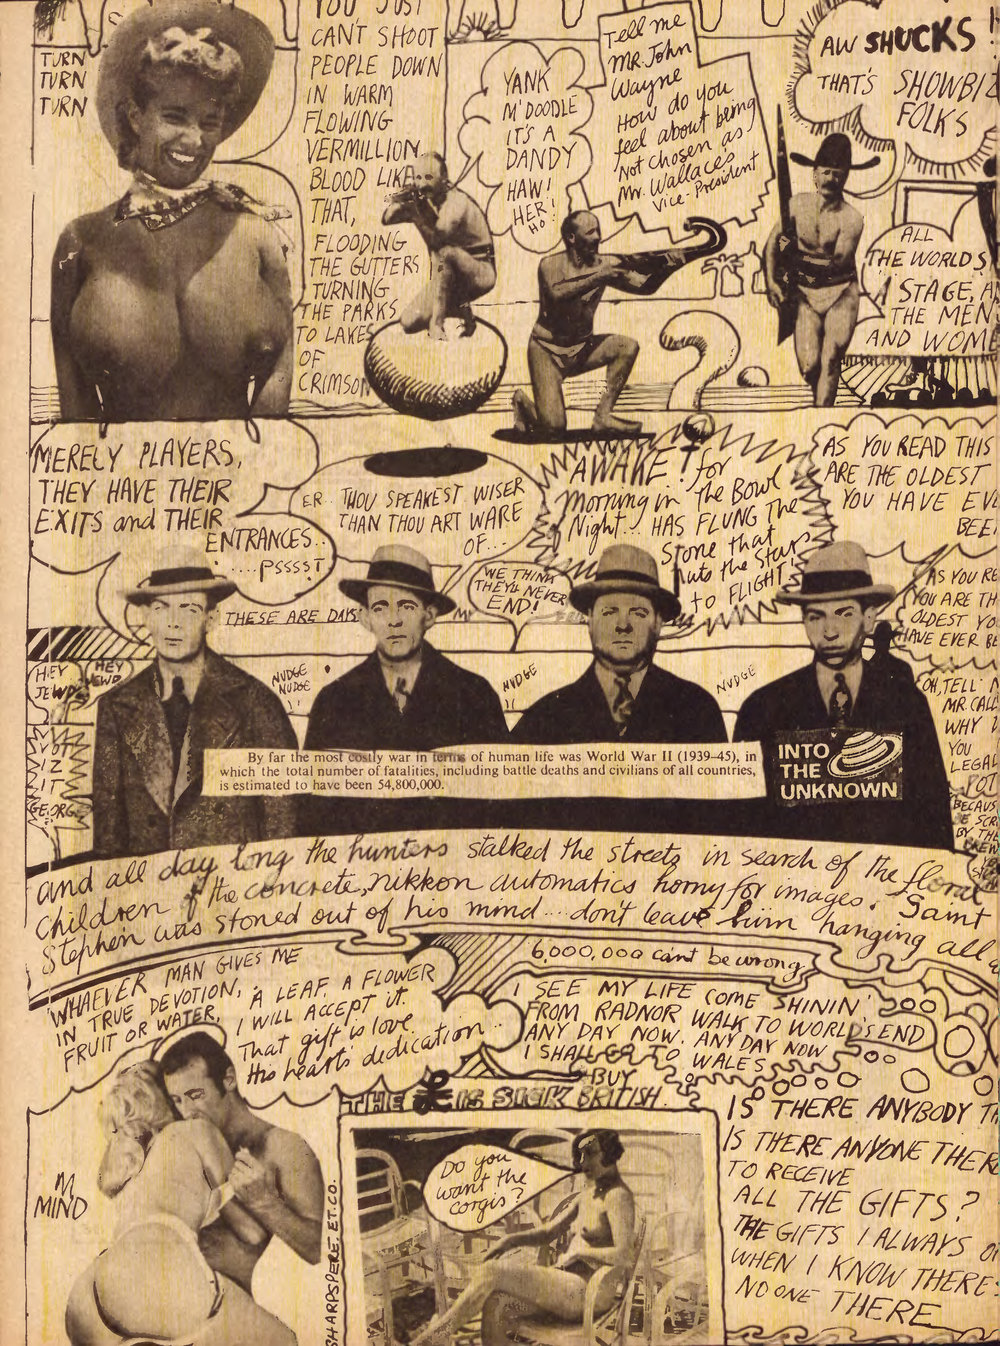 TURN
TURN
TURN
TURN
YOU JUST
CAN'T SHOOT
PEOPLE DOWN
IN WARM
FLOWING
VERMILLION
BLOOD LIKE
THAT,
FLOODING
THE GUTTERS
TURNING
THE PARKS
TO LAKES
OF
CRIMSON
YANK
M'DOODLE
IT'S A
DANDY
HAW!
HER!
HO!
Tell me
MR. John
Wayne
How do you
feel about being
Not chosen as
Mr. Wallace's
Vice-President
?
AW SHUCKS !
THAT'S SHOWBIZ
FOLKS
ALL
THE WORLD'S
A STAGE, AN
THE MEN
AND WOME
MERELY PLAYERS,
THEY HAVE THEIR
EXITS and THEIR
ENTRANCES..
....PSSSST
ER.. THOU SPEAKEST WISER
THAN THOU ART WARE
OF...
AWAKE! for
Morning in The Bowl
Night... HAS FLUNG The
Stone that
Puts the Stars
to FLIGHT!
AS YOU READ THIS
ARE THE OLDEST
YOU HAVE EVE
BEEN
THESE ARE DAYS
M'
WE THINK
THEY'LL NEVER
END!
AS YOU RE
YOU ARE TH
OLDEST YO
HAVE EVER BE
HEY
JEWD
HEY
JEWD
NUDGE
NUDGE
NUDGE
NUDGE
IZ
IT
GEORG
OH, TELL M
MR. CALL
WHY D
YOU
LEGAL
POT
BECAUS
BY TH
By far the most costly war in terms of human life was World War II (1939-45), in
which the total number of fatalities, including battle deaths and civilians of all countries,
is estimated to have been 54,800,000.
INTO
THE
UNKNOWN
and all day long the hunters stalked the streets in search of the floral
children of the concrete, nikkon automatics horny for images. Saint
Stephen was stoned out of his mind... don't leave him hanging all
6,000,000 can't be wrong
WHAEVER MAN GIVES ME
IN TRUE DEVOTION,
FRUIT OR WATER,
A LEAF, A FLOWER
I WILL ACCEPT it.
That gift is love.
His heart's dedication...
I SEE MY LIFE COME SHININ'
FROM RADNOR WALK TO WORLD'S END
ANY DAY NOW. ANY DAY NOW
I SHALL GO TO WALES
BUY
BRITISH.
THE
IS SICK
IM
MIND
SHARPSPERE. ET. CO.
Do you
want the
corgis?
IS THERE ANYBODY TH
IS THERE ANYONE THERE
TO RECEIVE
ALL THE GIFTS?
THE GIFTS I ALWAYS
WHEN I KNOW THERE
NO ONE THERE